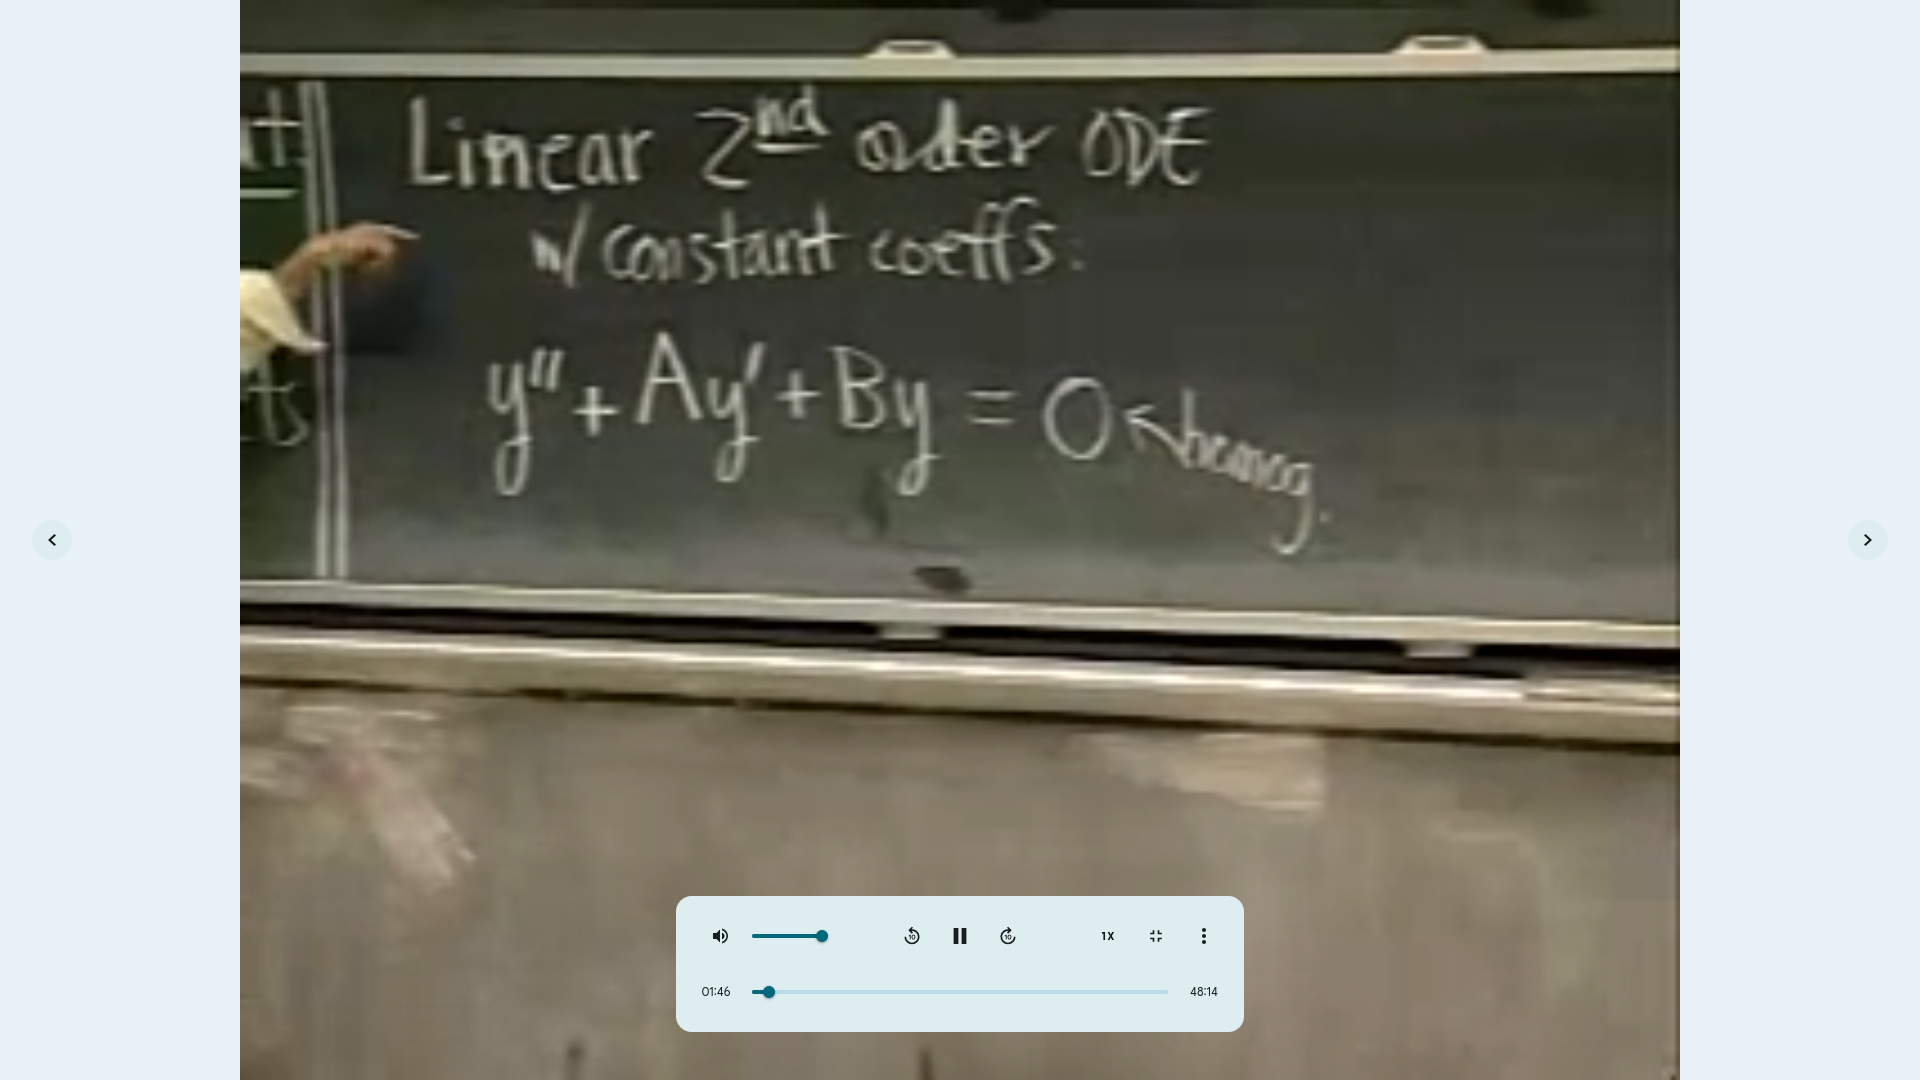 Linear 2nd order ODE
w/ constant coeffs.
y'' + Ay' + By = 0 ← homog.
1X
01:46
48:14